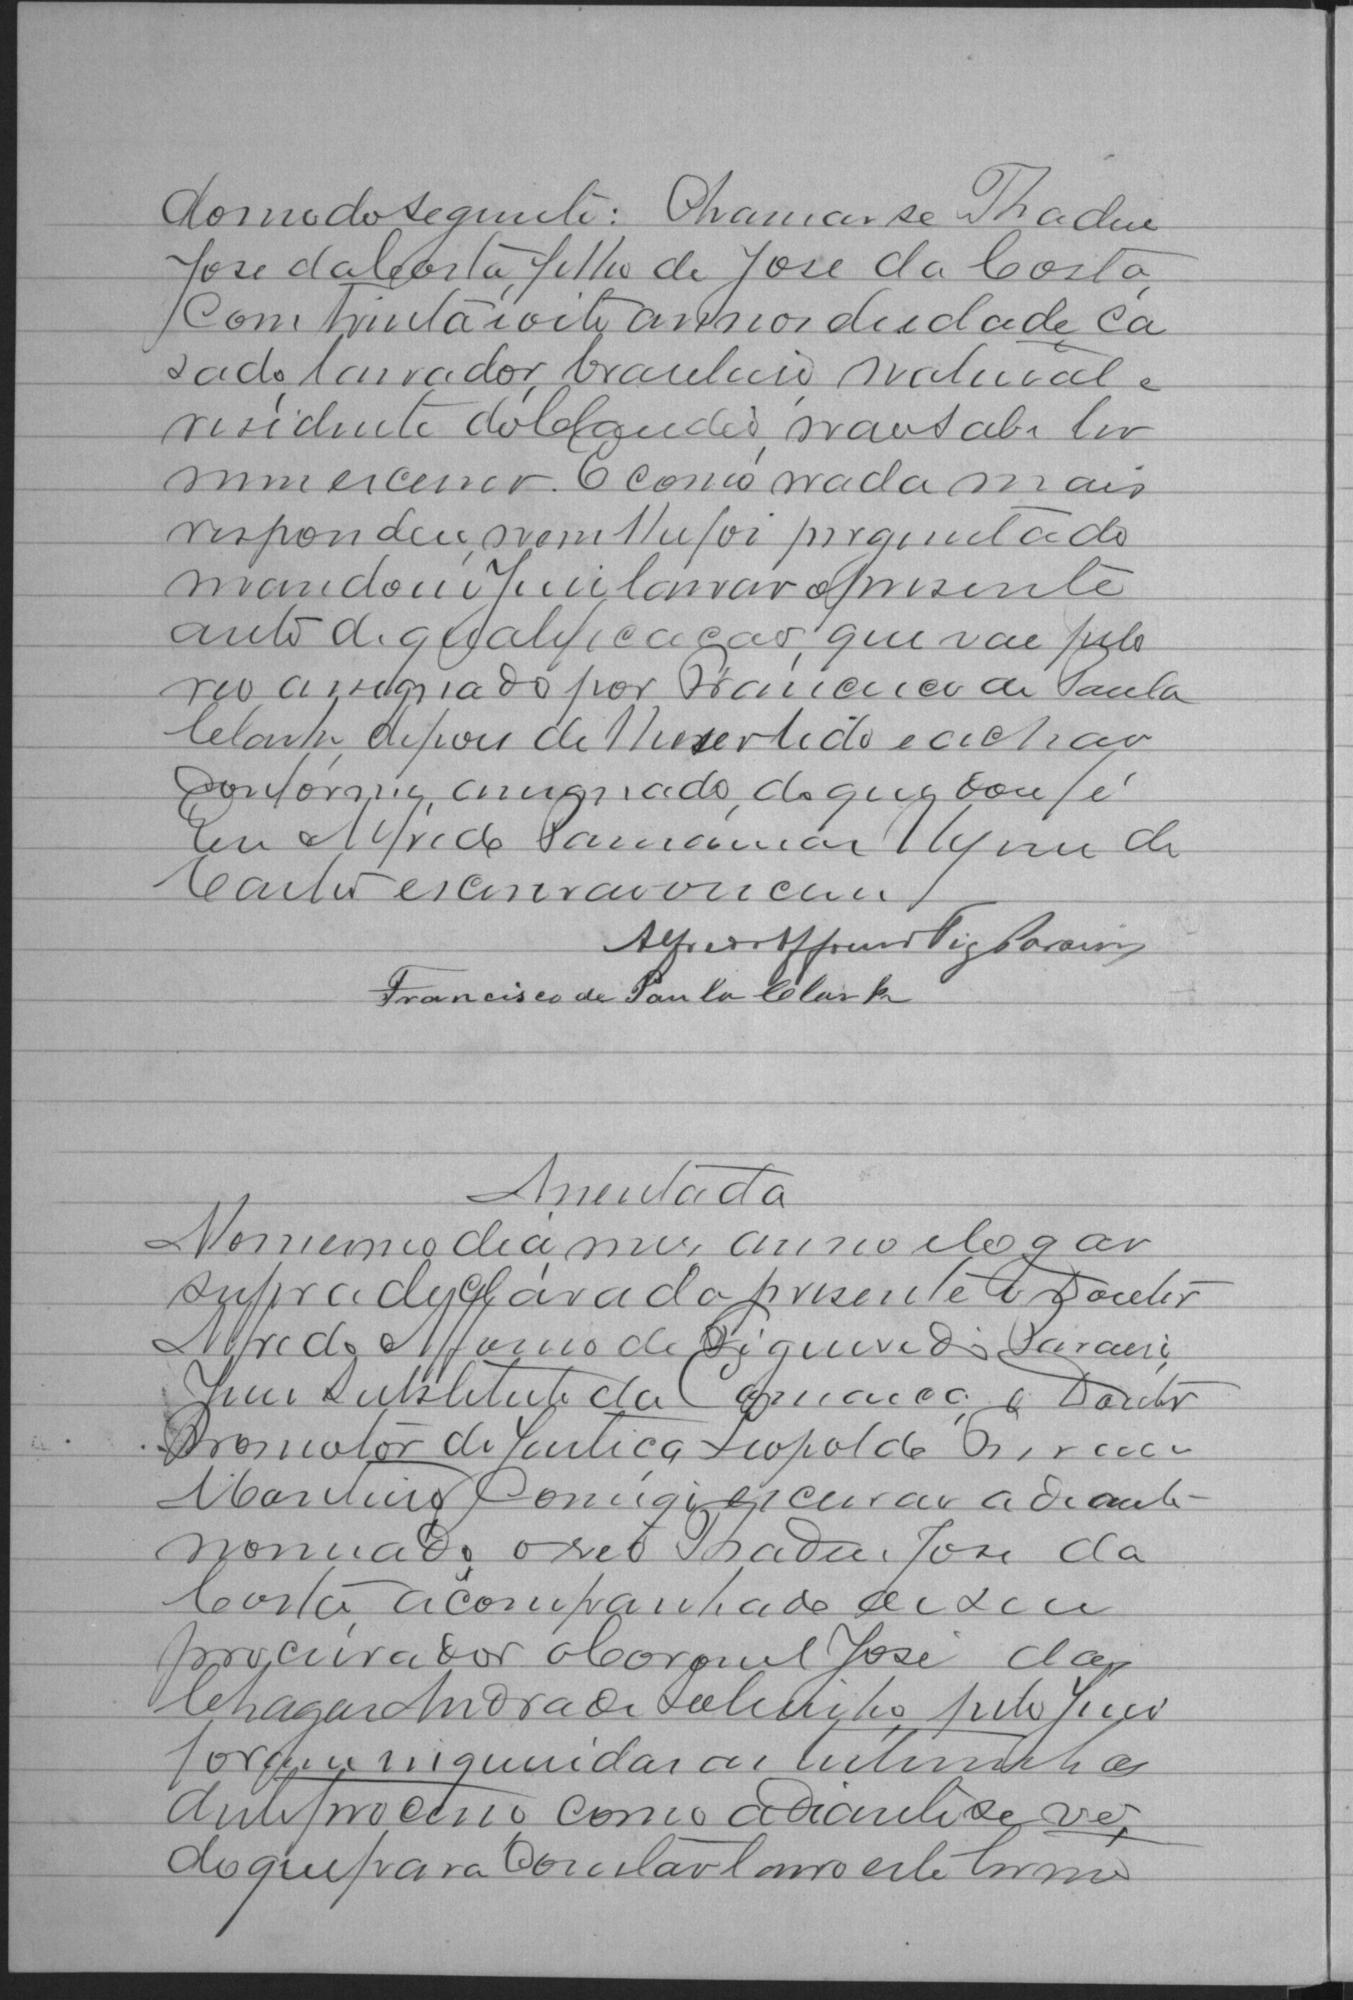 do modo seguinte: Chamar se Thadeu
José da Costa, filho de José da Costa,
Com trinta e oito annos de edade, ca
sado, lavrador, brasileiro, natural e
residente do, não sabe ler
nem escrever. E como nada mais
respondeu, nem lhe foi perguntado
mandou o Juiz lavrar o presente
auto de qualificação, que vae pelo
reo assignado por Francisco de Paula
Clark, depois de lhe ser lido e achar
conforme, assignado, do que dou fé
Eu Alfredo de
Castro escrivão o escrevi
Alfredo Affonso Fig Paraiso
Francisco de Paula Clark
Assentada
No mesmo dia, mez, anno e logar
supra declarado presente o Doutor
Alfredo Affonso de Figueiredo Paraiso,
Juiz Substituto da Comarca, o Doutor
Promotor de Justiça Leopoldo
Martins, Comigo escrivão adiante
nomeado, o reo Thadeu José da
Costa acompanhado de seu
procurador o Coronel José das
Chagas Andrade Sobrinho, pelo Juiz
foram inqueridas as testemunhas
deste processo como adiante se vê,
do que para constar lavro este termo